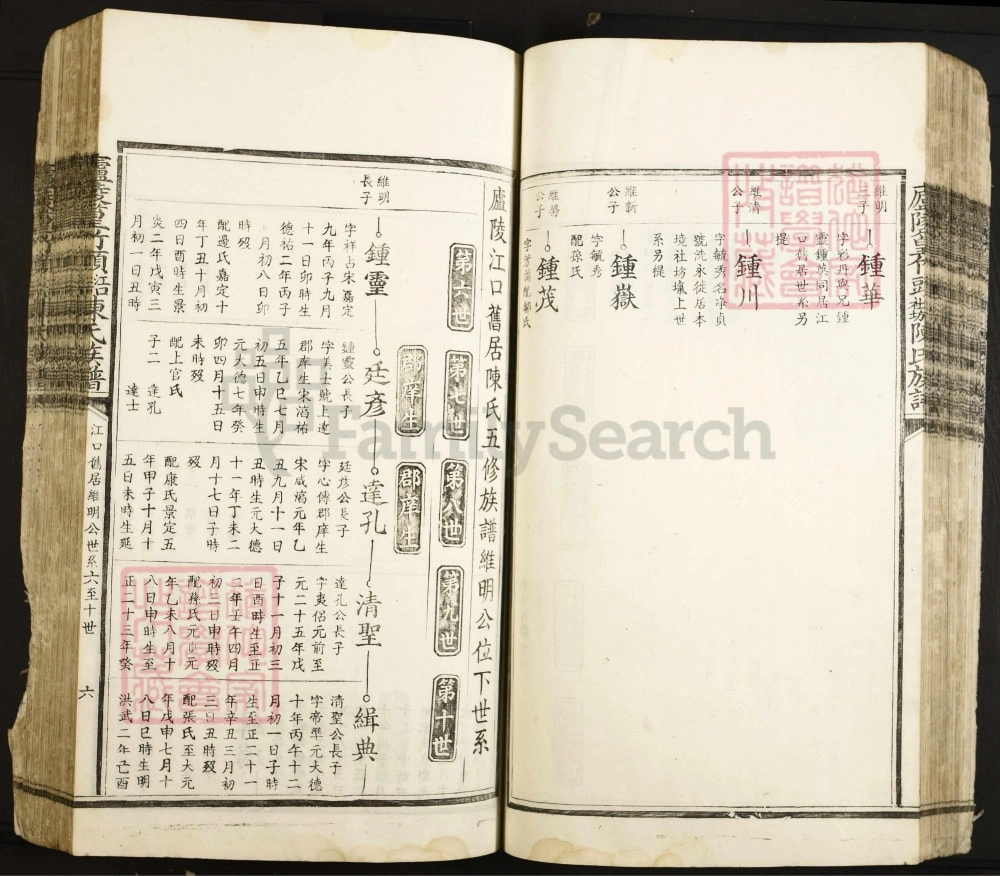 維明
三子
鍾華
字彩丹與兄鍾
靈鍾英同居江
口舊居世系另
提
維清
公子
鍾川
字毓秀名淳貞
號洗永徙居本
境社坊壠上世
系另提
維新
公子
鍾嶽
字毓秀
配孫氏
公子
鍾茂
廬陵江口舊居陳氏五修族譜維明公位下世系
第六世
第七世
第八世
第九世
第十世
郡庠生
郡庠生
維明
長子
鍾靈
字祥占宋嘉定
九年丙子九月
十一日卯時生
德祐二年丙子
月初八日卯
時歿
配邊氏嘉定十
年丁丑十月初
四日酉時生景
炎二年戊寅三
月初一日丑時
廷彥
鍾靈公長子
字美士號上達
郡庠生宋淳祐
五年乙巳七月
初五日申時生
元大德七年癸
卯四月十五日
未時歿
配上官氏
子二 達孔
達士
達孔
廷彥公長子
字心傳郡庠生
宋咸淳元年乙
丑九月十一日
丑時生元大德
十一年丁未二
月十七日子時
歿
配康氏景定五
年甲子十月十
五日未時生延
清聖
達孔公長子
字夷侶元前至
元二十五年戊
子十一月初三
日酉時生至正
二年壬午四月
初三日申時歿
配孫氏元貞元
年乙未八月十
八日申時生至
正二十三年癸
緝典
清聖公長子
字帝準元大德
十年丙午十二
月初一日子時
生至正二十一
年辛丑三月初
三日丑時歿
配張氏至大元
年戊申七月十
八日巳時生明
洪武二年己酉
江口舊居維明公世系六至十世
六
FamilySearch